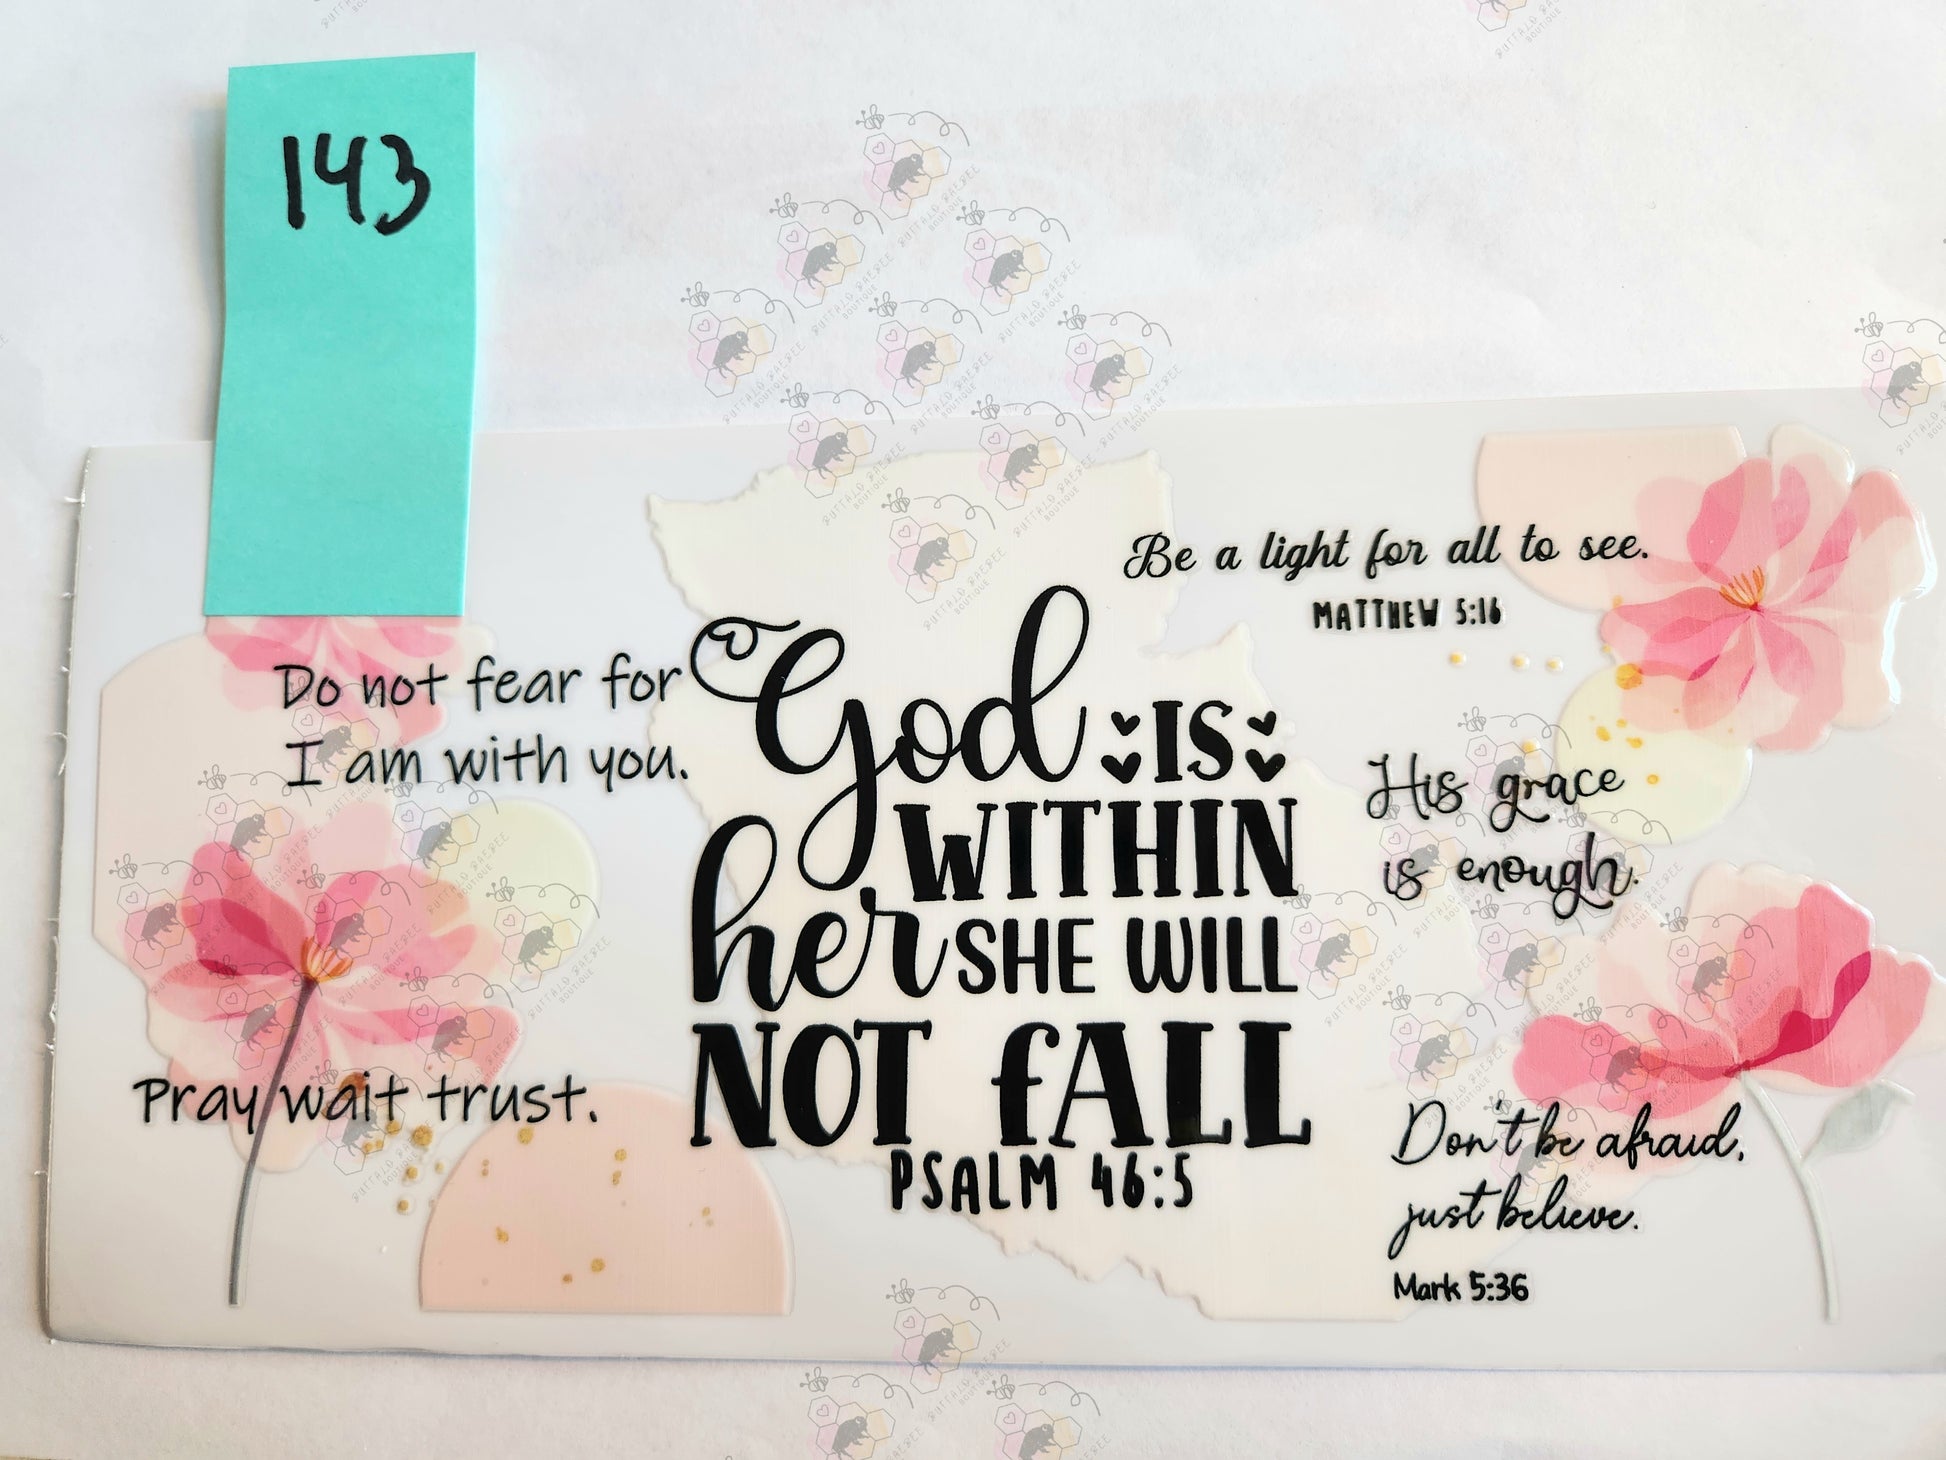 143
Do not fear for
I am with you.
Pray wait trust.
God IS
WITHIN
her SHE WILL
NOT fALL
PSALM 46:5
Be a light for all to see.
MATTHEW 5:16
His grace
is enough.
Don't be afraid,
just believe.
Mark 5:36
BUFFALO BAEBEE
BOUTIQUE